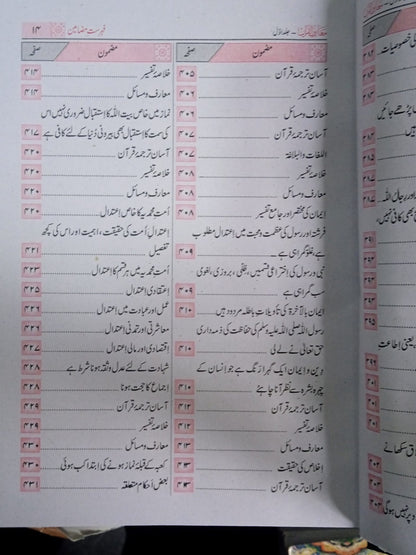 فہرست مضامین
۱۴
جلد اوّل
مضمون
صفحہ
آسان ترجمۂ قرآن ۴۰۵
خلاصۂ تفسیر ۴۰۶
معارف و مسائل ۴۰۶
آسان ترجمۂ قرآن ۴۰۷
اللغات والبلاغۃ ۴۰۷
خلاصۂ تفسیر ۴۰۸
معارف و مسائل ۴۰۸
ایمان کی مختصر اور جامع تفسیر ۴۰۸
فرشتہ اور رسول کی عظمت و محبت میں اعتدال مطلوب
ہے، غلو گمراہی ہے ۴۰۹
نبی و رسول کی اختراعی قسمیں، ظلّی، بروزی، لغوی
سب گمراہی ہے ۴۰۹
ایمان بالآخرۃ کی تاویلات باطلہ مردود ہیں ۴۱۰
رسول اللہ صلی اللہ علیہ وسلم کی حفاظت کی ذمہ داری
حق تعالیٰ نے لے لی ۴۱۰
دین و ایمان ایک گہرا رنگ ہے جو انسان کے
چہرہ بشرہ سے نظر آنا چاہئے ۴۱۰
آسان ترجمۂ قرآن ۴۱۲
خلاصۂ تفسیر ۴۱۲
معارف و مسائل ۴۱۳
اخلاص کی حقیقت ۴۱۳
آسان ترجمۂ قرآن ۴۱۳
مضمون
صفحہ
خلاصۂ تفسیر ۴۱۴
معارف و مسائل ۴۱۴
نماز میں خاص بیت اللہ کا استقبال ضروری نہیں اس
کی سمت کا استقبال بھی بیرونی دُنیا کے لئے کافی ہے ۴۱۷
آسان ترجمۂ قرآن ۴۲۰
خلاصۂ تفسیر ۴۲۰
معارف و مسائل ۴۲۰
اُمت محمدیہ کا خاص اعتدال ۴۲۰
اعتدالِ اُمت کی حقیقت، اہمیت اور اس کی کچھ
تفصیل ۴۲۱
اُمت محمدیہ میں ہر قسم کا اعتدال ۴۲۳
اعتقادی اعتدال ۴۲۵
عمل اور عبادت میں اعتدال ۴۲۶
معاشرتی اور تمدنی اعتدال ۴۲۶
اقتصادی اور مالی اعتدال ۴۲۷
شہادت کے لئے عدل و ثقہ ہونا شرط ہے ۴۲۸
اجماع کا حجت ہونا ۴۲۸
آسان ترجمۂ قرآن ۴۲۹
خلاصۂ تفسیر ۴۲۹
معارف و مسائل ۴۳۰
کعبہ کے قبلۂ نماز ہونے کی ابتدا کب ہوئی ۴۳۰
بعض اَحکام متعلقہ ۴۳۱